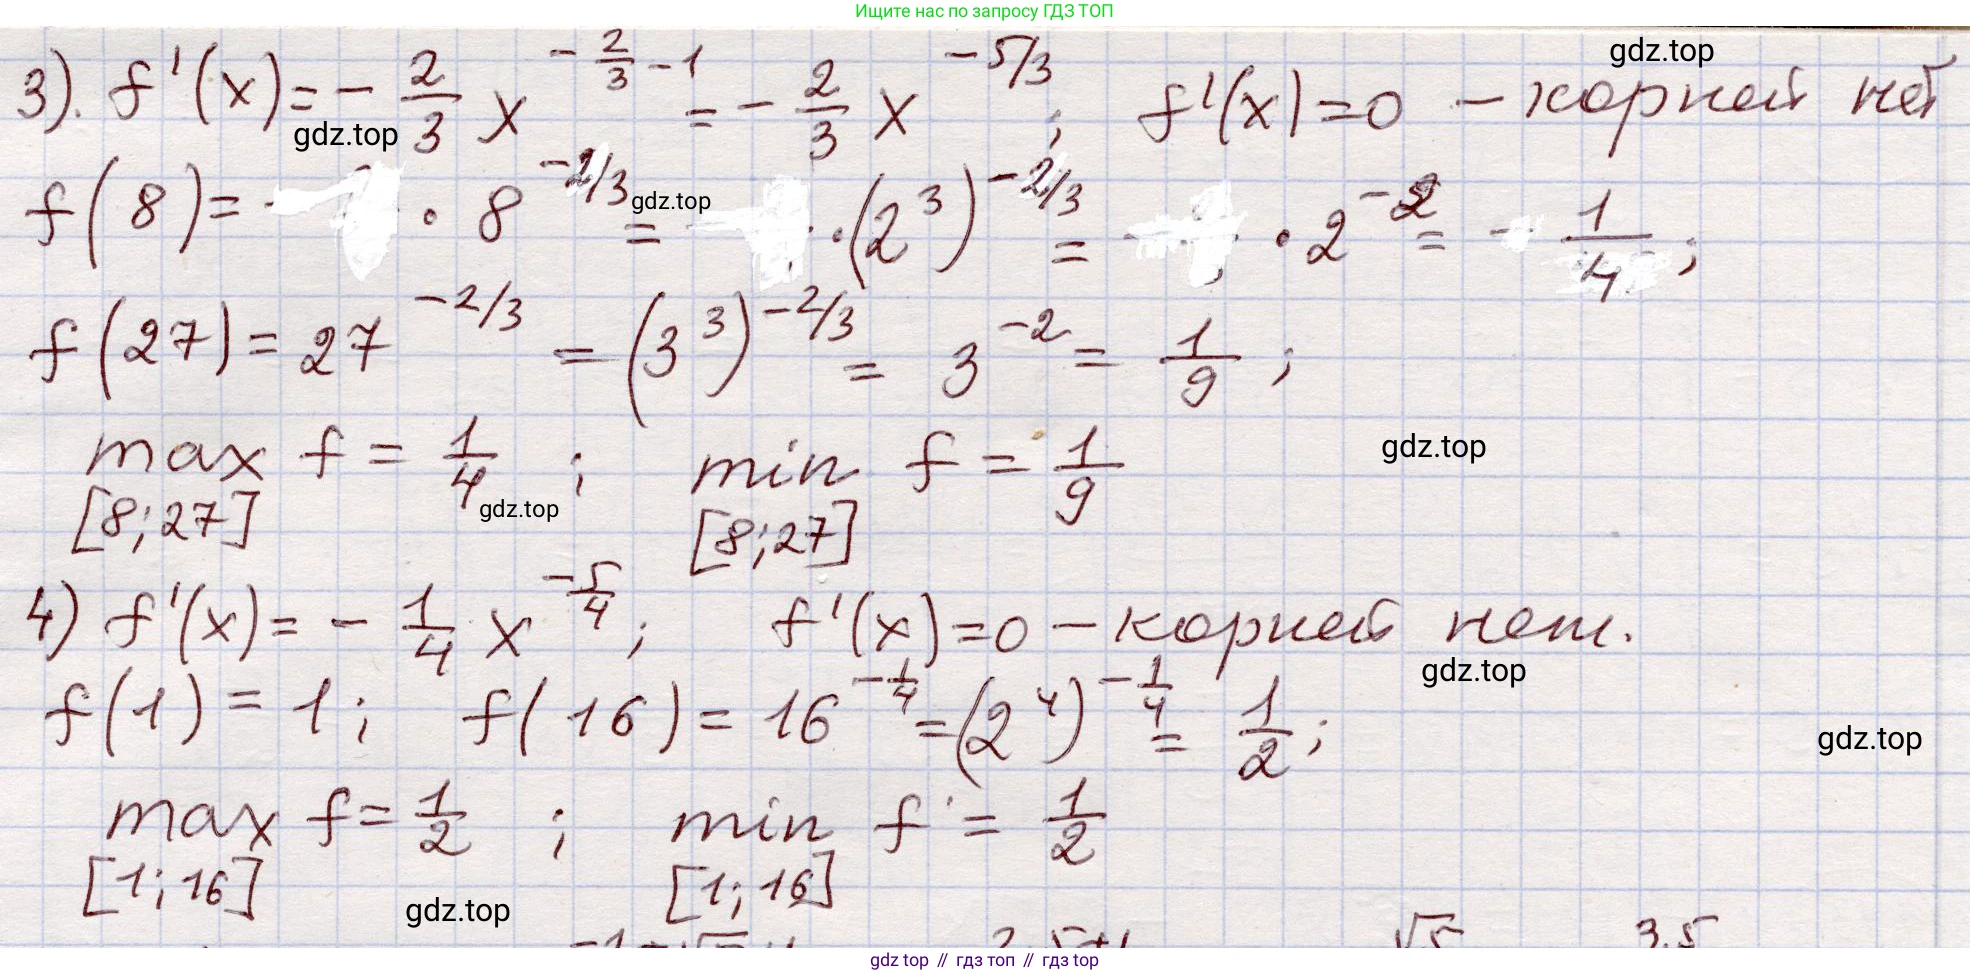 Ищите нас по запросу ГДЗ ТОП
gdz.top
3). f'(x) = - 2/3 x^(-2/3 - 1) = - 2/3 x^(-5/3); f'(x) = 0 - корней нет
gdz.top
f(8) = - · 8^(-2/3) = - · (2^3)^(-2/3) = - · 2^(-2) = - 1/4;
gdz.top
f(27) = 27^(-2/3) = (3^3)^(-2/3) = 3^(-2) = 1/9;
max f = 1/4 ; min f = 1/9
gdz.top
[8; 27] [8; 27]
gdz.top
4) f'(x) = - 1/4 x^(-5/4); f'(x) = 0 - корней нет.
gdz.top
f(1) = 1; f(16) = 16^(-1/4) = (2^4)^(-1/4) = 1/2;
gdz.top
max f = 1/2 ; min f = 1/2
[1; 16] [1; 16]
gdz.top
gdz top // гдз топ // gdz top